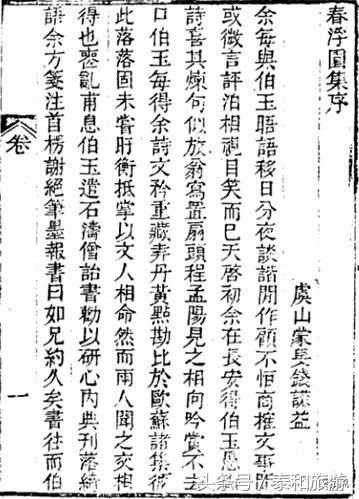 春浮園集序
虞山蒙叟錢謙益
余每與伯玉晤語移日分夜談諧間作顧不恒商推文事所
或微言評泊相視目笑而已天啓初余在長安得伯玉愚
詩喜其煉句似放翁寫置扇頭程孟陽見之相向吟賞不去
口伯玉每得余詩文矜重藏弆丹黃點勘比於歐蘇諸集彼
此落落固未嘗盱衡抵掌以文人相命然而兩人聞之交相
得也喪亂甫息伯玉遣石濤僧詒書勸以研心內典刊落綺
語余方箋注首楞謝絕筆墨報書曰如兄約久矣書往而伯
卷
一
头条号 / 泰和旅游